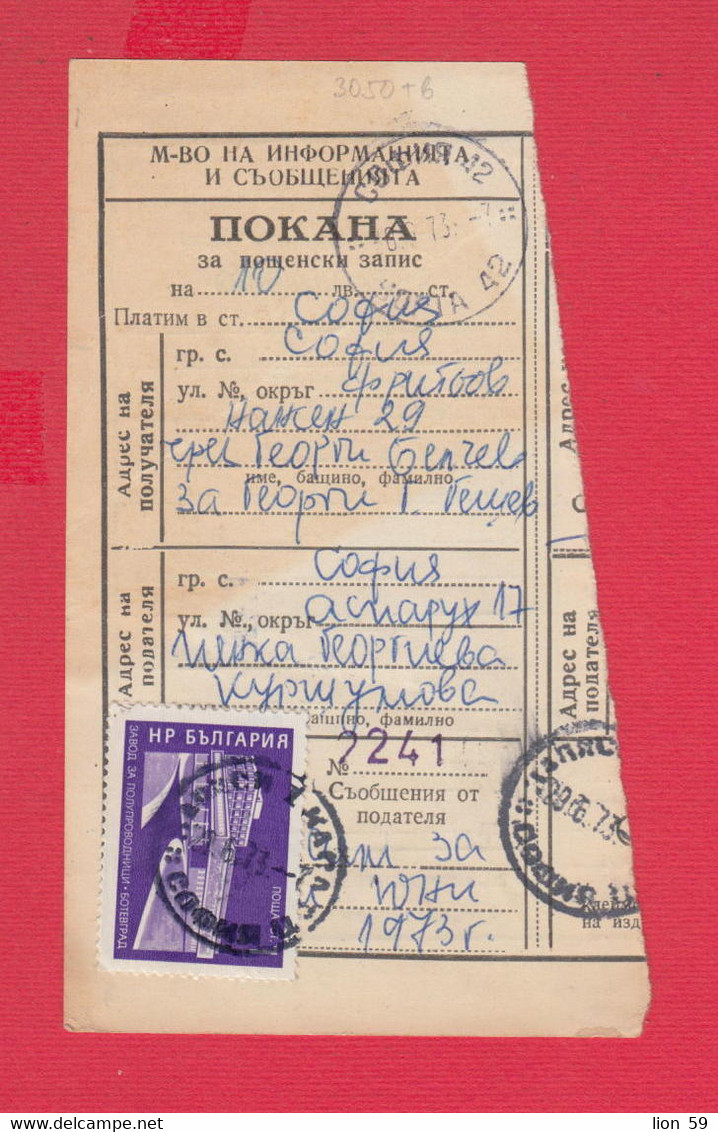 3050+в
М-ВО НА ИНФОРМАЦИЯТА
И СЪОБЩЕНИЯТА
СОФИЯ 42
ПОКАНА
за пощенски запис
на 10 лв. ст.
Платим в ст. София
гр. с. София
ул. №, окръг Фритьов
Нансен 29
чрез Георги Белчев
име, бащино, фамилно
за Георги Г. Гешев
Адрес на
получателя
гр. с. София
ул. №., окръг Аспарух 17
Ценка Георгиева
Куршумова
бащино, фамилно
Адрес на
подателя
№ 2241
Съобщения от
подателя
за
юни
1973 г.
НР БЪЛГАРИЯ
ЗАВОД ЗА ПОЛУПРОВОДНИЦИ · БОТЕВГРАД
ПОЩА
Адрес
Адрес на
подателя
на изд
lion 59